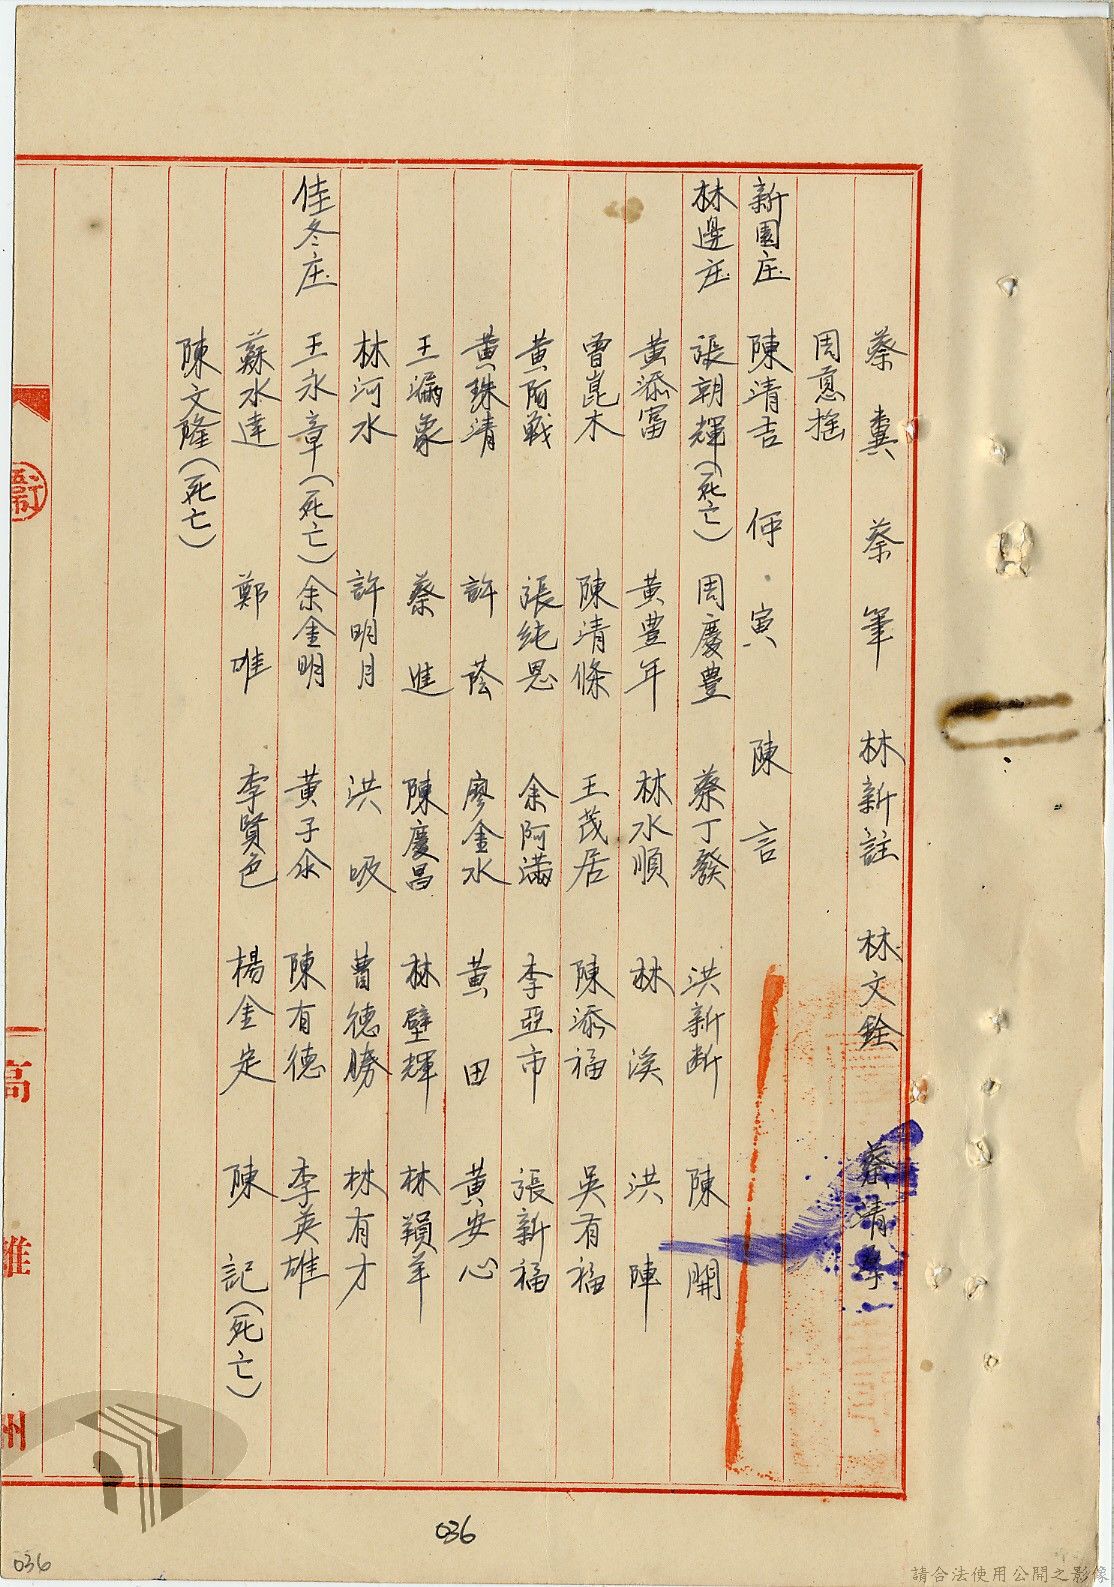 蔡粪 蔡筆 林新註 林文銓 蔡清
周意
新園庄 陳清吉 仲寅 陳言
林邊庄 張朝輝(死亡) 周慶豊 蔡丁發 洪新断 陳開
黄添富 黄豊年 林水順 林溪 洪陣
曾崑木 陳清條 王茂居 陳添福 吳有福
黄阿戦 張純恩 余阿滿 李亞市 張新福
黄珠清 許蔭 廖金水 黄田 黄安心
王漏象 蔡進 陳慶昌 林壁輝 林羊
林河水 許明月 洪吸 曹德勝 林有才
佳冬庄 王永章(死亡) 余金明 黄子 陳有德 李英雄
蘇水達 鄭唯 李賢色 楊金定 陳記(死亡)
陳文隆(死亡)
高雄州
036
036
請合法使用公開之影像